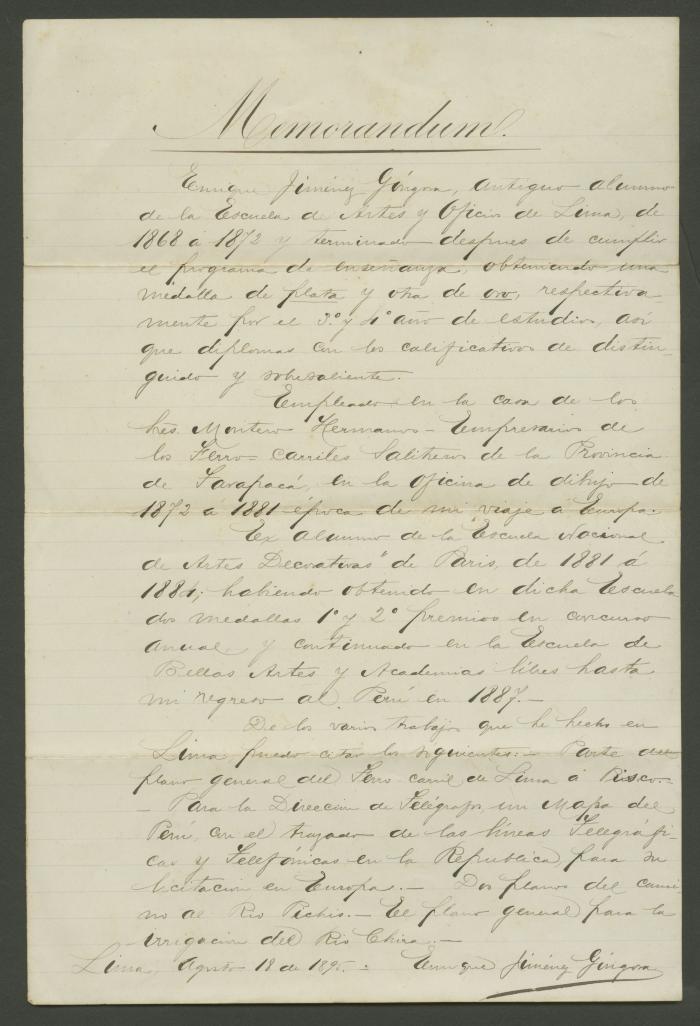 Memorandum.
Enrique Jiménez Góngora, antiguo alumno
de la Escuela de Artes y Oficios de Lima, de
1868 á 1872 y terminado despues de cumplir
el programa de enseñanza, obteniendo una
medalla de plata y otra de oro, respectiva-
mente por el 3.º y 4.º año de estudios, así
que diplomas con los calificativos de distin-
guido y sobresaliente.
Empleado en la casa de los
Montero Hermanos - Empresarios de
los Ferro-carriles Salitreros de la Provincia
de Tarapacá, en la oficina de dibujo de
1872 á 1881 época de mi viaje á Europa.
Ex alumno de la "Escuela Nacional
de Artes Decorativas" de Paris, de 1881 á
1884; habiendo obtenido en dicha Escuela
dos medallas 1º y 2º premios en concurso
anual y continuado en la Escuela de
Bellas Artes y Academias libres hasta
mi regreso al Perú en 1887.-
De los varios trabajos que he hecho en
Lima puedo citar los siguientes:- Parte del
plano general del Ferro-carril de Lima á Pisco.-
- Para la Direccion de Telégrafos, un Mapa del
Perú, con el trazado de las líneas Telegráfi-
cas y Telefónicas en la Republica, para su
licitacion en Europa.- Dos planos del cami-
no al Rio Pichis.- El plano general para la
irrigacion del Rio Chira.-
Lima, Agosto 18 de 1895.- Enrique Jiménez Góngora